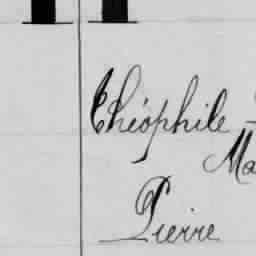 Théophile
Ma
Pierre